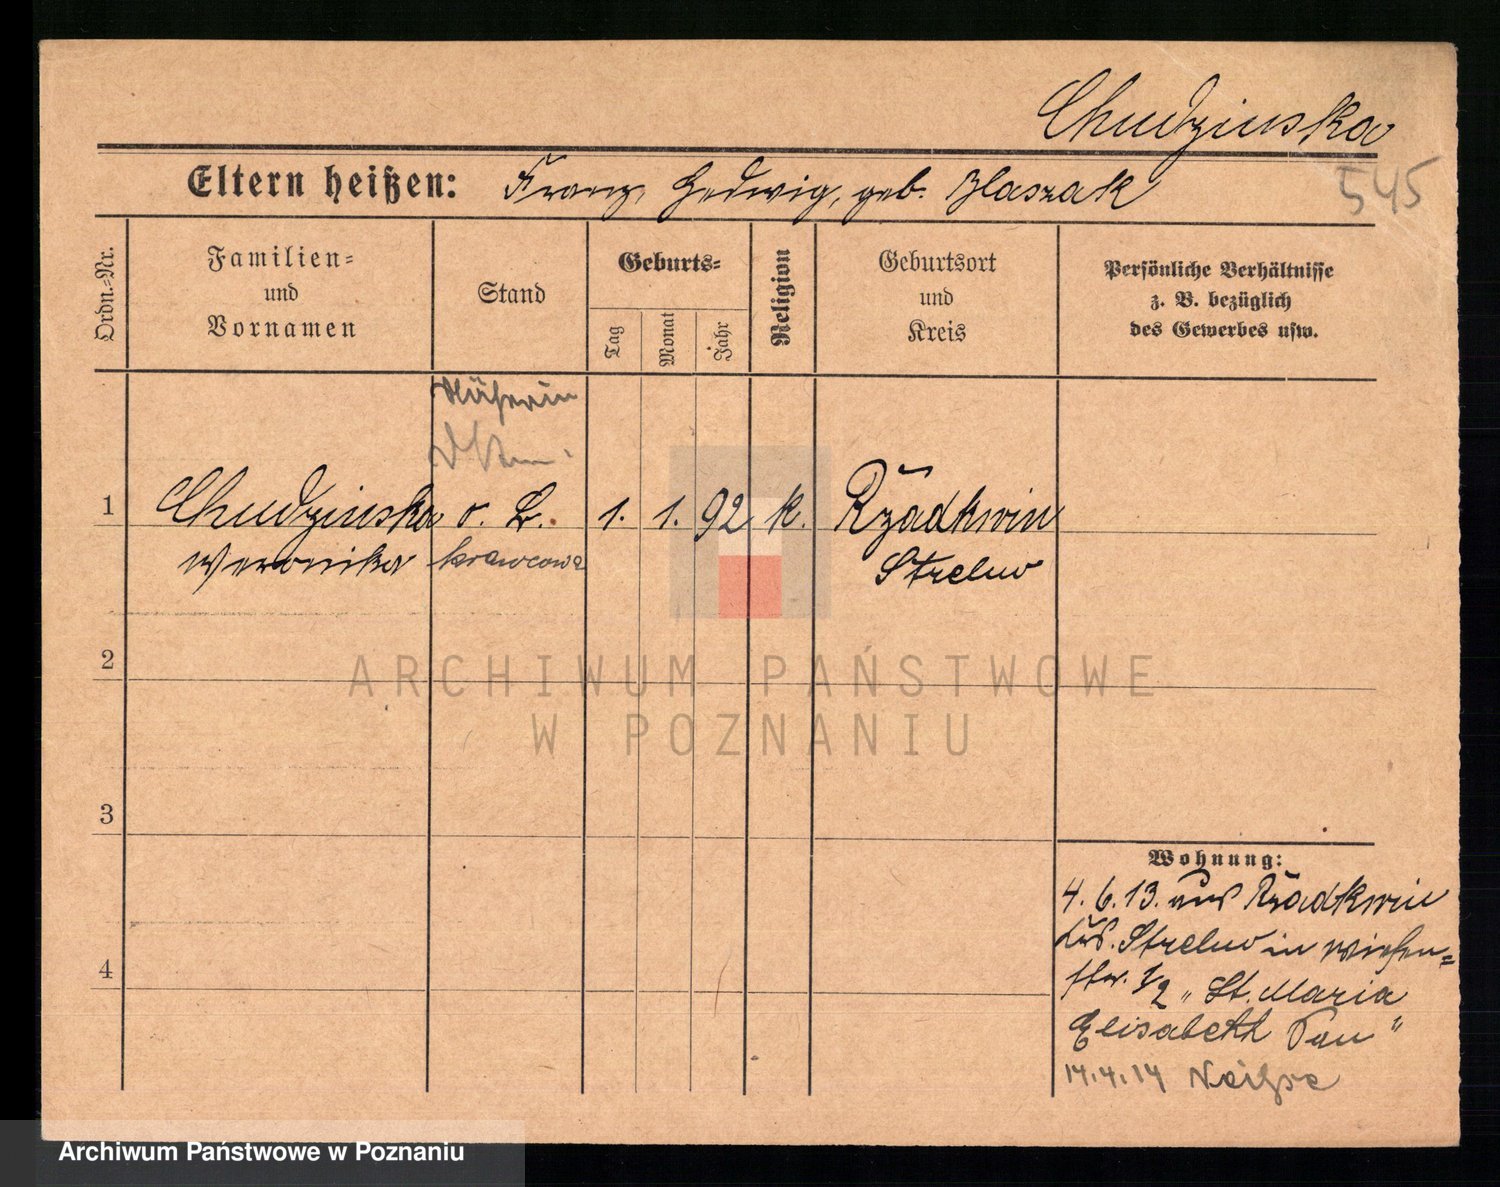 Chudzinska
545
Eltern heißen: Franz, Hedwig, geb. Blaszak
Ordn.-Nr.
Familien-
und
Vornamen
Stand
Geburts-
Tag
Monat
Jahr
Religion
Geburtsort
und
Kreis
Persönliche Verhältnisse
z. B. bezüglich
des Gewerbes usw.
Näherin
1 Chudzinska o. B. 1. 1. 92 k. Rzadkwin
Weronika krawcowa Strelno
2
3
4
Wohnung:
4. 6. 13. aus Rzadkwin
Krs. Strelno in Wiesen=
str. 1/2 „St. Maria
Elisabeth
14.4.14
ARCHIWUM PAŃSTWOWE
W POZNANIU
Archiwum Państwowe w Poznaniu